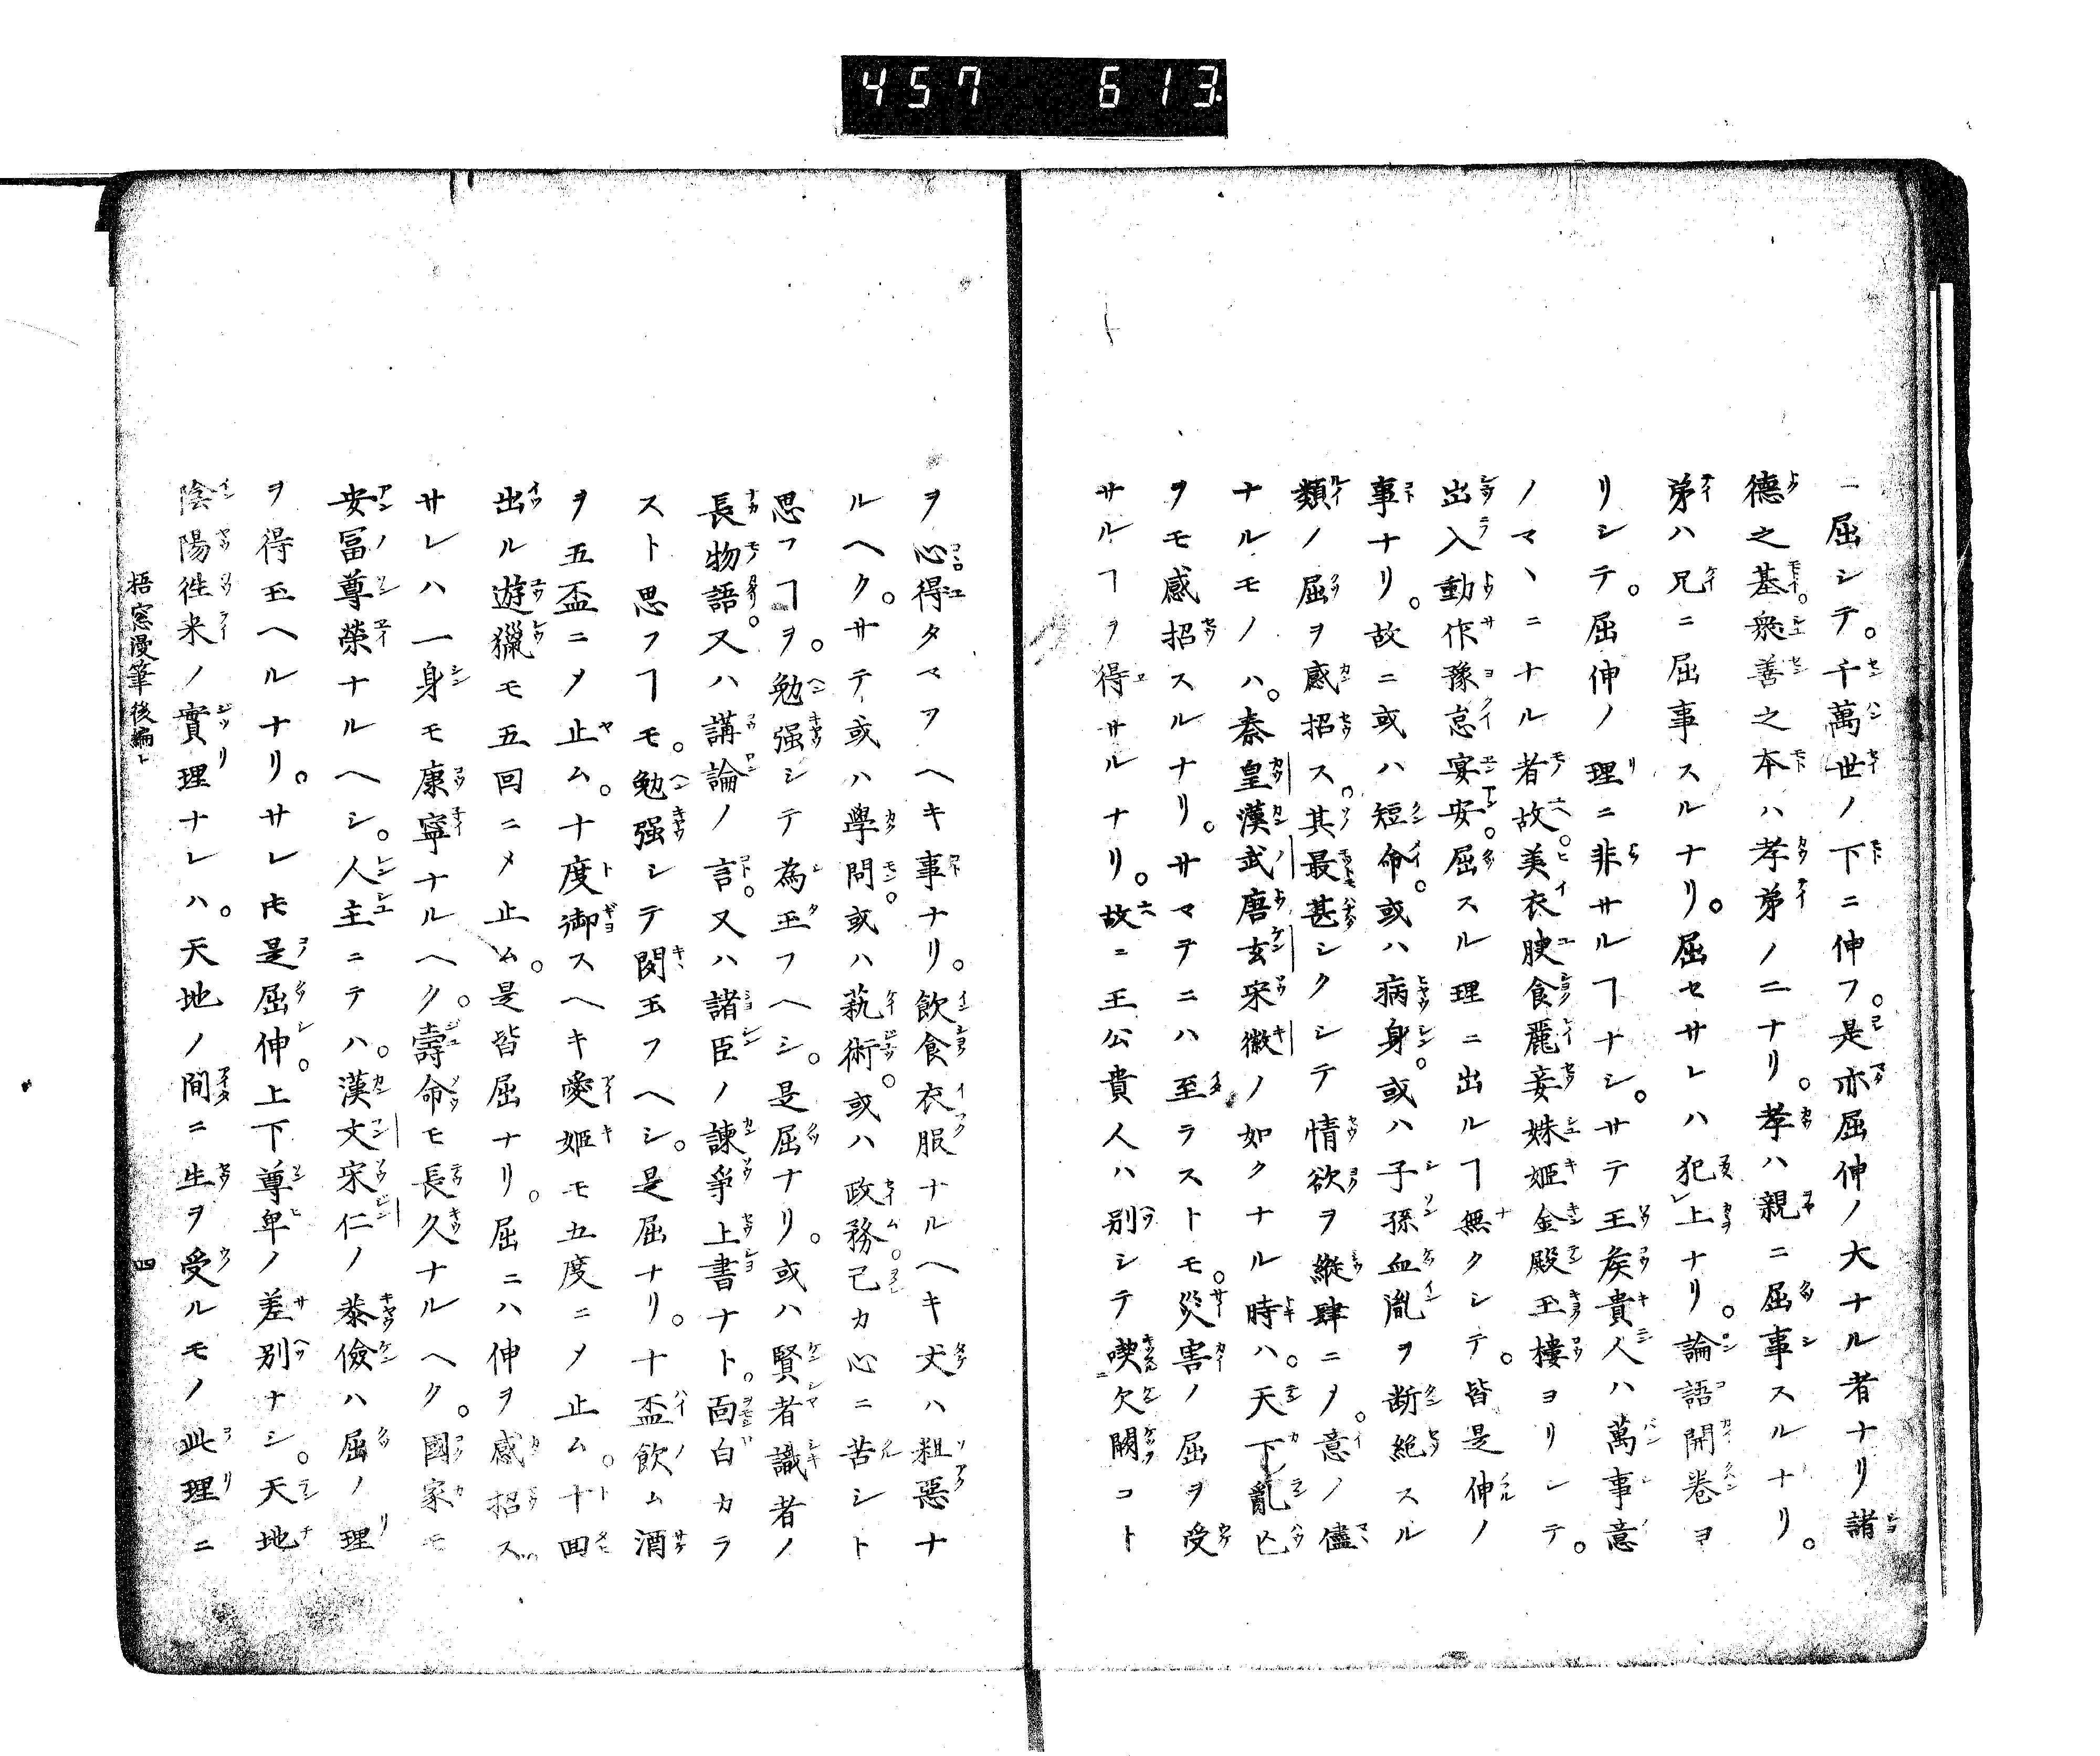 457 613.
一屈シテ。千萬世ノ下ニ伸フ。是亦屈伸ノ大ナル者ナリ諸
德之基。衆善之本ハ孝弟ノ二ナリ。孝ハ親ニ屈事スルナリ。
弟ハ兄ニ屈事スルナリ。屈セサレハ犯上ナリ。論語開卷ヨ
リシテ。屈伸ノ理ニ非サルヿナシ。サテ王矦貴人ハ萬事意
ノマヽニナル者故。美衣腴食麗妾姝姬金殿玉樓ヨリシテ。
出入動作豫怠宴安。屈スル理ニ出ルヿ無クシテ。皆是伸ノ
事ナリ。故ニ或ハ短命。或ハ病身。或ハ子孫血胤ヲ断絶スル
類ノ屈ヲ感招ス。其最甚シクシテ情欲ヲ縱肆ニメ。意ノ儘
ナルモノハ。秦皇漢武唐玄宋徽ノ如クナル時ハ。天下亂亡
ヲモ感招スルナリ。サマテニハ至ラストモ。災害ノ屈ヲ受
サルヿヲ得サルナリ。故ニ王公貴人ハ别シテ喫欠闕コト
ヲ心得タマフヘキ事ナリ。飲食衣服ナルヘキ丈ハ粗惡ナ
ルヘク。サテ或ハ學問。或ハ藝術。或ハ政務。己カ心ニ苦シト
思フヿヲ。勉强シテ為玉フヘシ。是屈ナリ。或ハ賢者識者ノ
長物語。又ハ講論ノ言。又ハ諸臣ノ諫爭上書ナト。面白カラ
スト思フヿモ。勉强シテ聞玉フヘシ。是屈ナリ。十盃飲ム酒
ヲ五盃ニメ止ム。十度御スヘキ愛姬モ五度ニメ止ム。十囬
出ル遊獵モ五回ニメ止ム。是皆屈ナリ。屈ニハ伸ヲ感招ス。
サレハ一身モ康寧ナルヘク。壽命モ長久ナルヘク。國家モ
安冨尊榮ナルヘシ。人主ニテハ。漢文宋仁ノ恭儉ハ屈ノ理
ヲ得玉ヘルナリ。サレ𪜈是屈伸。上下尊卑ノ差别ナシ。天地
陰陽徃来ノ實理ナレハ。天地ノ間ニ生ヲ受ルモノ此理ニ
梧窓漫筆後編上 四